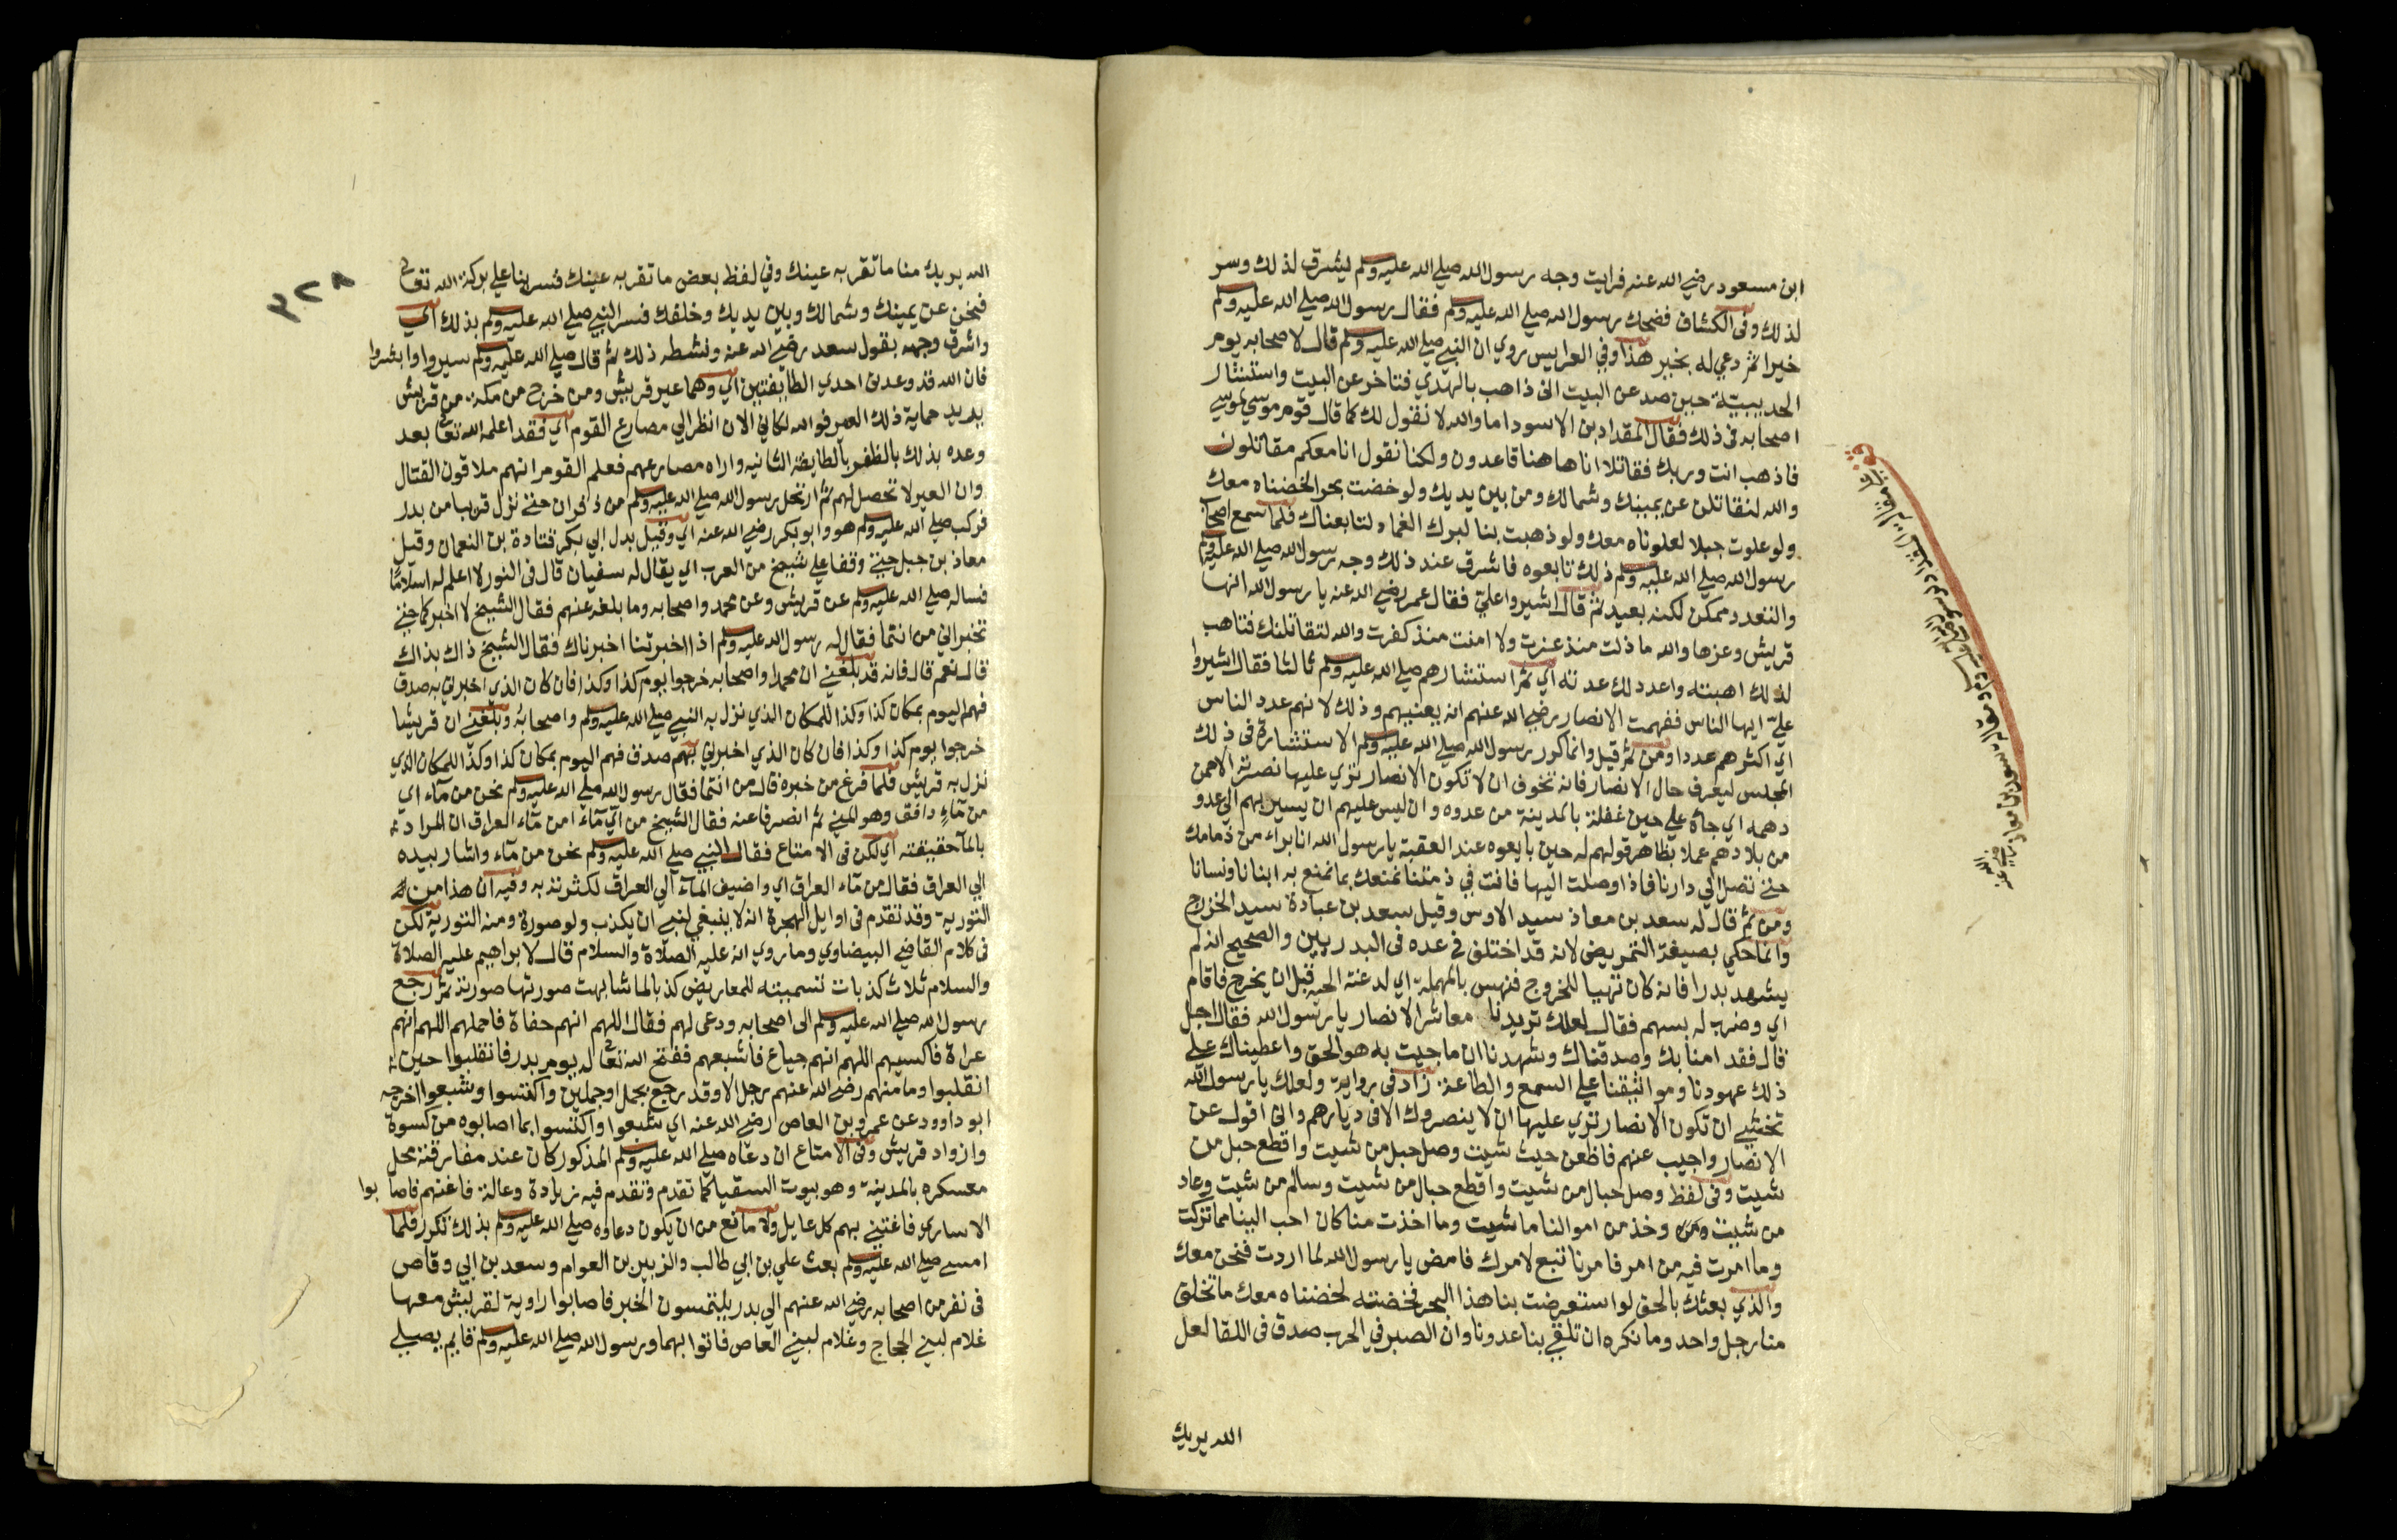 ابن مسعود رضي الله عنه فرايت وجه رسول الله صلي الله عليه وسلم يشرق لذلك وسر
لذلك وفى الكشاف فضحك رسول الله صلي الله عليه وسلم فقال رسول الله صلي الله عليه وسلم
خيرا ثم دعي له بخير هذا وفي العرايس روي ان النبي صلي الله عليه وسلم قال لاصحابه يوم
الحديبية حين صد عن البيت انى ذاهب بالهدي فناحر عن البيت واستشار
اصحابه فى ذلك فقال المقداد بن الاسود اما والله لا نقول لك كما قال قوم موسي لموسي
فاذهب انت وربك فقاتلا انا هاهنا قاعدون ولكنا نقول انا معكم مقاتلون
والله لنقاتلن عن يمينك وشمالك ومن بين يديك ولو خضت بحرا لخضناه معك
ولو علوت جبلا لعلوناه معك ولو ذهبت بنا لبرك الغماد لتابعناك فلما سمع اصحاب
رسول الله صلي الله عليه وسلم ذلك تابعوه فاشرق عند ذلك وجه رسول الله صلي الله عليه وسلم
والتعدد ممكن لكنه بعيد ثم قال اشيروا علي فقال عمر رضي الله عنه يا رسول الله انها
قريش وعزها والله ما ذلت منذ عزت ولا امنت منذ كفرت والله لتقاتلنك فتاهب
لذلك اهبته واعدد لذلك عدته اي ثم استشارهم صلي الله عليه وسلم ثالثا فقال اشيروا
عليّ ايها الناس ففهمت الانصار رضي الله عنهم انه يعنيهم وذلك لانهم عدد الناس
اي اكثرهم عددا ومن ثم قيل وانما كرر رسول الله صلي الله عليه وسلم الاستشارة فى ذلك
المجلس ليعرف حال الانصار فانه تخوف ان لا تكون الانصار تري عليها نصرته الا ممن
دهمه اي جاه علي حين غفلة بالمدينة من عدوه وان ليس عليهم ان يسير بهم الي عدو
من بلادهم عملا بظاهر قولهم له حين بايعوه عند العقبة يا رسول الله انا براء من ذمامك
حتى تصل الي دارنا فاذا وصلت اليها فانت في ذمتنا نمنعك بما نمنع به ابنانا ونسانا
ومن ثم قال له سعد بن معاذ سيد الاوس وقيل سعد بن عبادة سيد الخزرج
وانما حكي بصيغة التمريض لانه قد اختلف في عده فى البدريين والصحيح انه لم
يشهد بدرا فانه كان تهيا للخروج فنهس بالمهملة اي لدغته الحية قبل ان يخرج فاقام
اي وضرب له بسهم فقال لعلك تريدنا معاشر الانصار يا رسول الله فقال اجل
قال فقد امنا بك وصدقناك وشهدنا ان ما جيت به هو الحق واعطيناك علي
ذلك عهودنا ومواثيقنا علي السمع والطاعة زاد فى رواية ولعلك يا رسول الله
تخشي ان تكون الانصار تري عليها ان لا ينصروك الا فى ديارهم وانى اقول عن
الانصار واجيب عنهم فاظعن حيث شيت وصل حبل من شيت واقطع حبل من
شيت وفى لفظ وصل حبال من شيت واقطع حبال من شيت وسالم من شيت وعاد
من شيت وخذ من اموالنا ما شيت وما اخذت منا كان احب الينا مما تركت
وما امرت فيه من امر فامرنا تبع لامرك فامض يا رسول الله لما اردت فنحن معك
والذي بعثك بالحق لو استعرضت بنا هذا البحر فخضته لخضناه معك ما تخلف
منا رجل واحد وما نكره ان تلقي بنا عدونا وان الصبر في الحرب صدق فى اللقا لعل
الله يريك
الله يريك منا ما تقر به عينك وفي لفظ بعض ما تقر به عينك فسر بنا علي بركة الله تعالى
فنحن عن يمينك وشمالك وبين يديك وخلفك فسر النبي صلي الله عليه وسلم بذلك اي
واشرق وجهه بقول سعد رضي الله عنه ونشطه ذلك ثم قال صلي الله عليه وسلم سيروا وابشروا
فان الله قد وعدنى احدي الطايفتين اي وهما عير قريش ومن خرج من مكة من قريش
يريد حماية ذلك العير فوالله لكاني الان انظر الي مصارع القوم اي فقد اعلمه الله تعالى بعد
وعده بذلك بالظفر بالطايفة الثانيه واراه مصارعهم فعلم القوم انهم ملاقون القتال
وان العير لا تحصل لهم ثم ارتحل رسول الله صلي الله عليه وسلم من ذفران حتى نزل قريبا من بدر
فركب صلي الله عليه وسلم هو وابو بكر رضي الله عنه اي وقيل بدل ابي بكر قتادة بن النعمان وقيل
معاذ بن جبل حتى وقفا علي شيخ من العرب اي يقال له سفيان قال فى النور لا اعلم له اسلاما
فساله صلي الله عليه وسلم عن قريش وعن محمد واصحابه وما بلغه عنهم فقال الشيخ لا اخبركما حتى
تخبراني من انتما فقال له رسول الله عليه وسلم اذا اخبرتنا اخبرناك فقال الشيخ ذاك بذاك
قال نعم قال فانه قد بلغني ان محمدا واصحابه خرجوا يوم كذا وكذا فان كان الذي اخبرني به صدق
فهم اليوم بمكان كذا وكذا للمكان الذي نزل به النبي صلي الله عليه وسلم واصحابه وبلغني ان قريشا
خرجوا يوم كذا وكذا فان كان الذي اخبرني بهم صدق فهم اليوم بمكان كذا وكذا للمكان الذي
نزل به قريش فلما فرغ من خبره قال من انتما فقال رسول الله صلي الله عليه وسلم نحن من ماء اي
من ماء دافق وهو المني ثم انصرفا عنه فقال الشيخ من اي ماء امن ماء العراق ان المراد
بالما حقيقته اي لكن فى الامتاع فقال النبي صلي الله عليه وسلم نحن من ماء واشار بيده
الي العراق فقال من ماء العراق اي واضيف الماء الي العراق لكثرته به وفيه ان هذا من
التورية وقد تقدم فى اوايل الهجرة انه لا ينبغي لنبي ان يكذب ولو صورة ومنه التورية لكن
فى كلام القاضي البيضاوي وما روي انه عليه الصلاة والسلام قال لابراهيم عليه الصلاة
والسلام ثلاث كذبات تسميته للمعاريض كذبا لما شابهت صورتها صورته ثم رجع
رسول الله صلي الله عليه وسلم الى اصحابه ودعى لهم فقال اللهم انهم حفاة فاحملهم اللهم انهم
عراة فاكسيهم اللهم انهم جياع فاشبعهم ففتح الله تعالى له يوم بدر فانقلبوا حين
انقلبوا وما منهم رضي الله عنهم رجل الا وقد رجع بجمل او جملين واكتسوا وشبعوا اخرجه
ابو داوود عن عمرو بن العاص رضي الله عنه اي شبعوا واكتسوا بما اصابوه من كسوة
وازواد قريش وفى الامتاع ان دعاه صلي الله عليه وسلم المذكور كان عند مفارقته محل
معسكره بالمدينة وهو بيوت السقيا كما تقدم وتقدم فيه زيادة وعالة فاغنهم فاصابوا
الاساري فاغتني بهم كل عايل ولا مانع من ان يكون دعاوه صلي الله عليه وسلم بذلك تكرر فلما
امسى صلي الله عليه وسلم بعث علي بن ابي طالب والزبير بن العوام وسعد بن ابي وقاص
فى نفر من اصحابه رضي الله عنهم الي بدر يلتمسون الخبر فاصابوا راوية لقريش معها
غلام لبني الحجاج وغلام لبني العاص فاتوا بهما ورسول الله صلي الله عليه وسلم قايم يصلي
٣٢٨